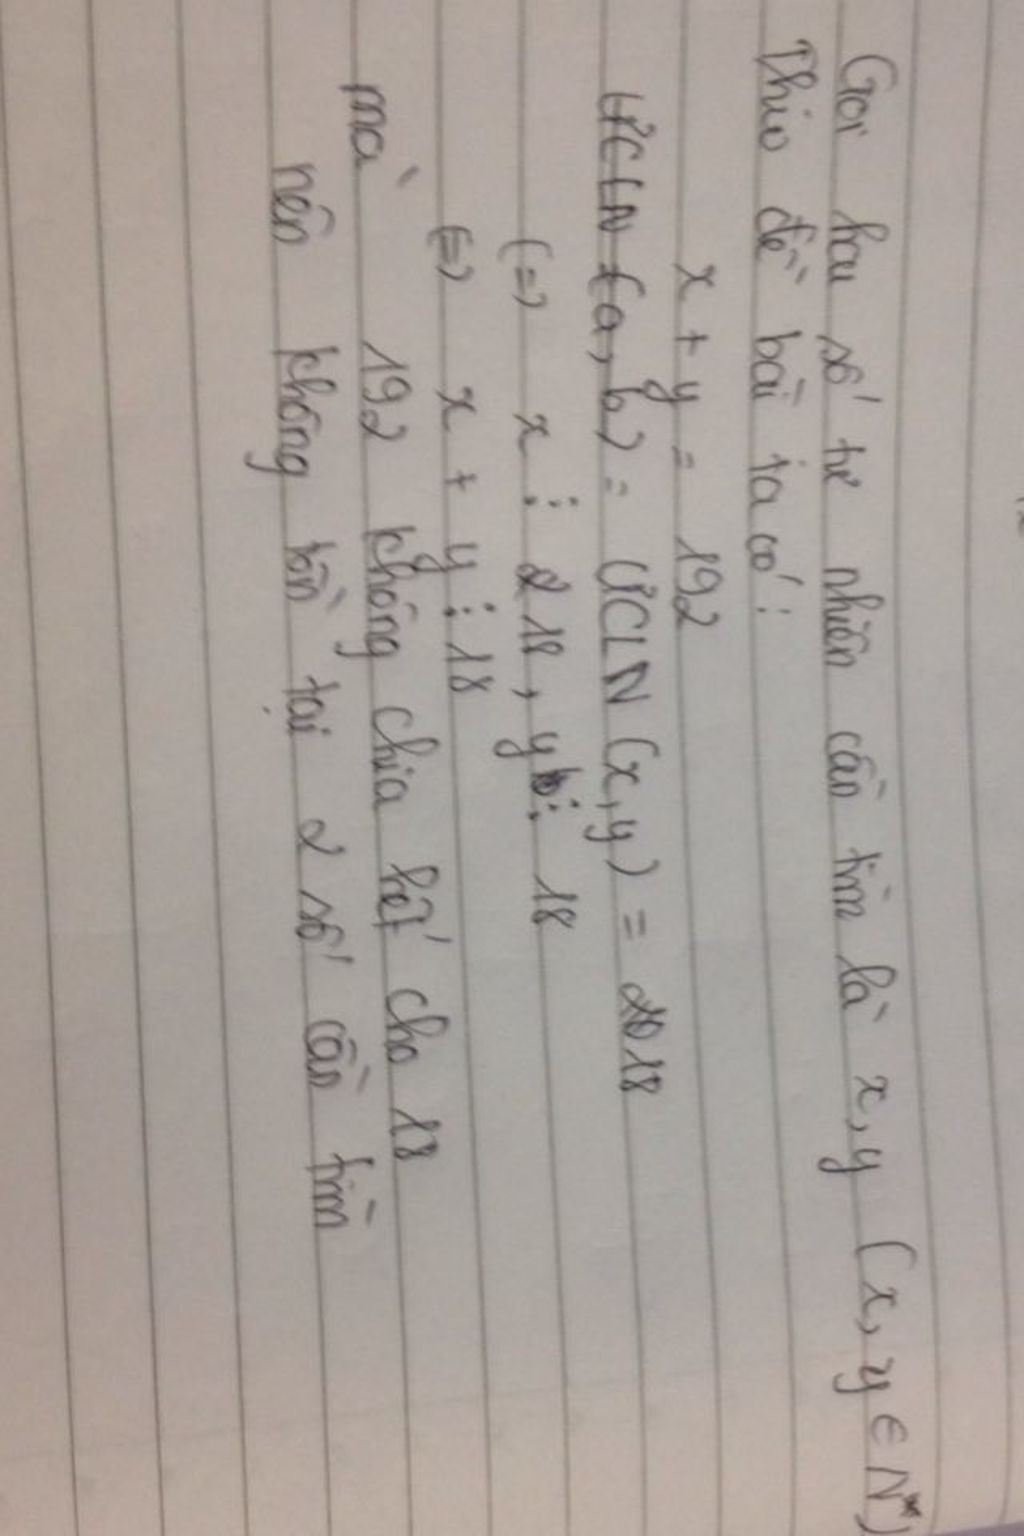 Gọi hai số tự nhiên cần tìm là x, y (x, y ∈ N*)
Theo đề bài ta có:
x + y = 192
ƯCLN (a, b) = ƯCLN (x, y) = 18
(=) x ⋮ 18, y ⋮ 18
(=) x + y ⋮ 18
mà 192 không chia hết cho 18
nên không tồn tại 2 số cần tìm